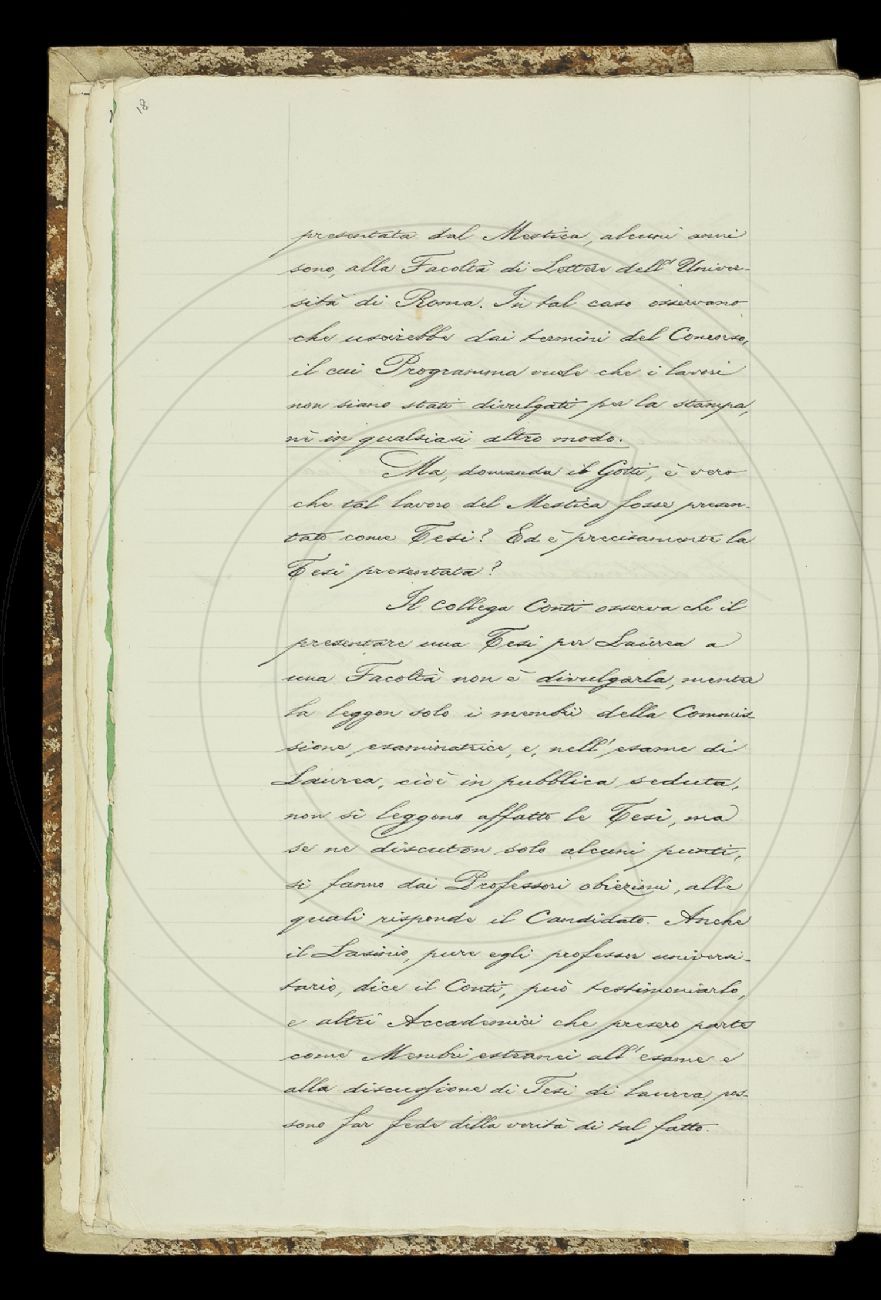 18
presentata dal Mestica, alcuni anni
sono, alla Facoltà di Lettere dell'Univer-
sità di Roma. In tal caso osservano
che uscirebbe dai termini del Concorso,
il cui Programma vuole che i lavori
non siano stati divulgati per la stampa,
nè in qualsiasi altro modo.
Ma, domanda il Gotti, è vero
che tal lavoro del Mestica fosse presen-
tato come Tesi? Ed è precisamente la
Tesi presentata?
Il collega Conti osserva che il
presentare una Tesi per Laurea a
una Facoltà non è divulgarla, mentre
la leggon solo i membri della Commis
sione esaminatrice, e, nell'esame di
Laurea, cioè in pubblica seduta,
non si leggono affatto le Tesi, ma
se ne discuton solo alcuni punti,
si fanno dai Professori obiezioni, alle
quali risponde il Candidato. Anche
il Lasinio, pure egli professor universi-
tario, dice il Conti, può testimoniarlo,
e altri Accademici che presero parte
come Membri estranei all'esame e
alla discussione di Tesi di laurea pos-
sono far fede della verità di tal fatto.